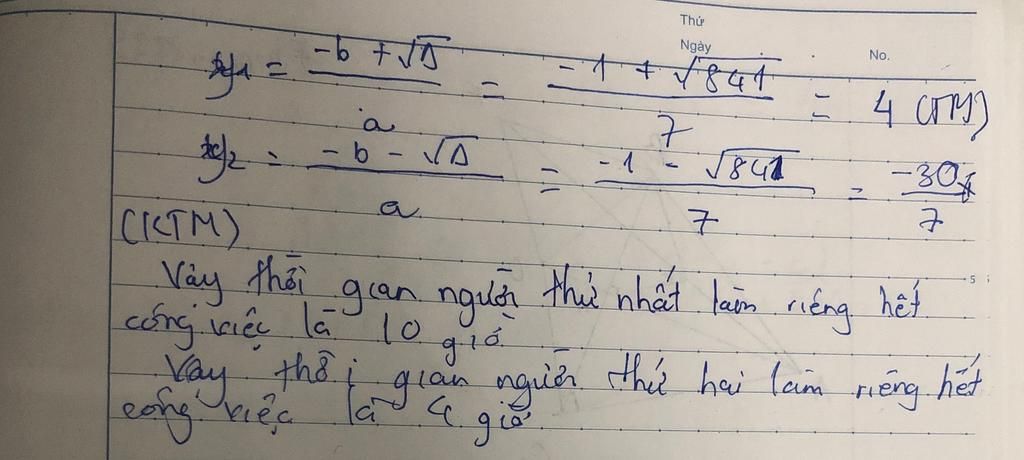 Thứ
Ngày
No.
y₁ = (-b + √Δ)/a = (-1 + √841)/7 = 4 (TM)
y₂ = (-b - √Δ)/a = (-1 - √841)/7 = -30/7
(KTM)
Vậy thời gian người thứ nhất làm riêng hết
công việc là 10 giờ
Vậy thời gian người thứ hai làm riêng hết
công việc là 4 giờ
5